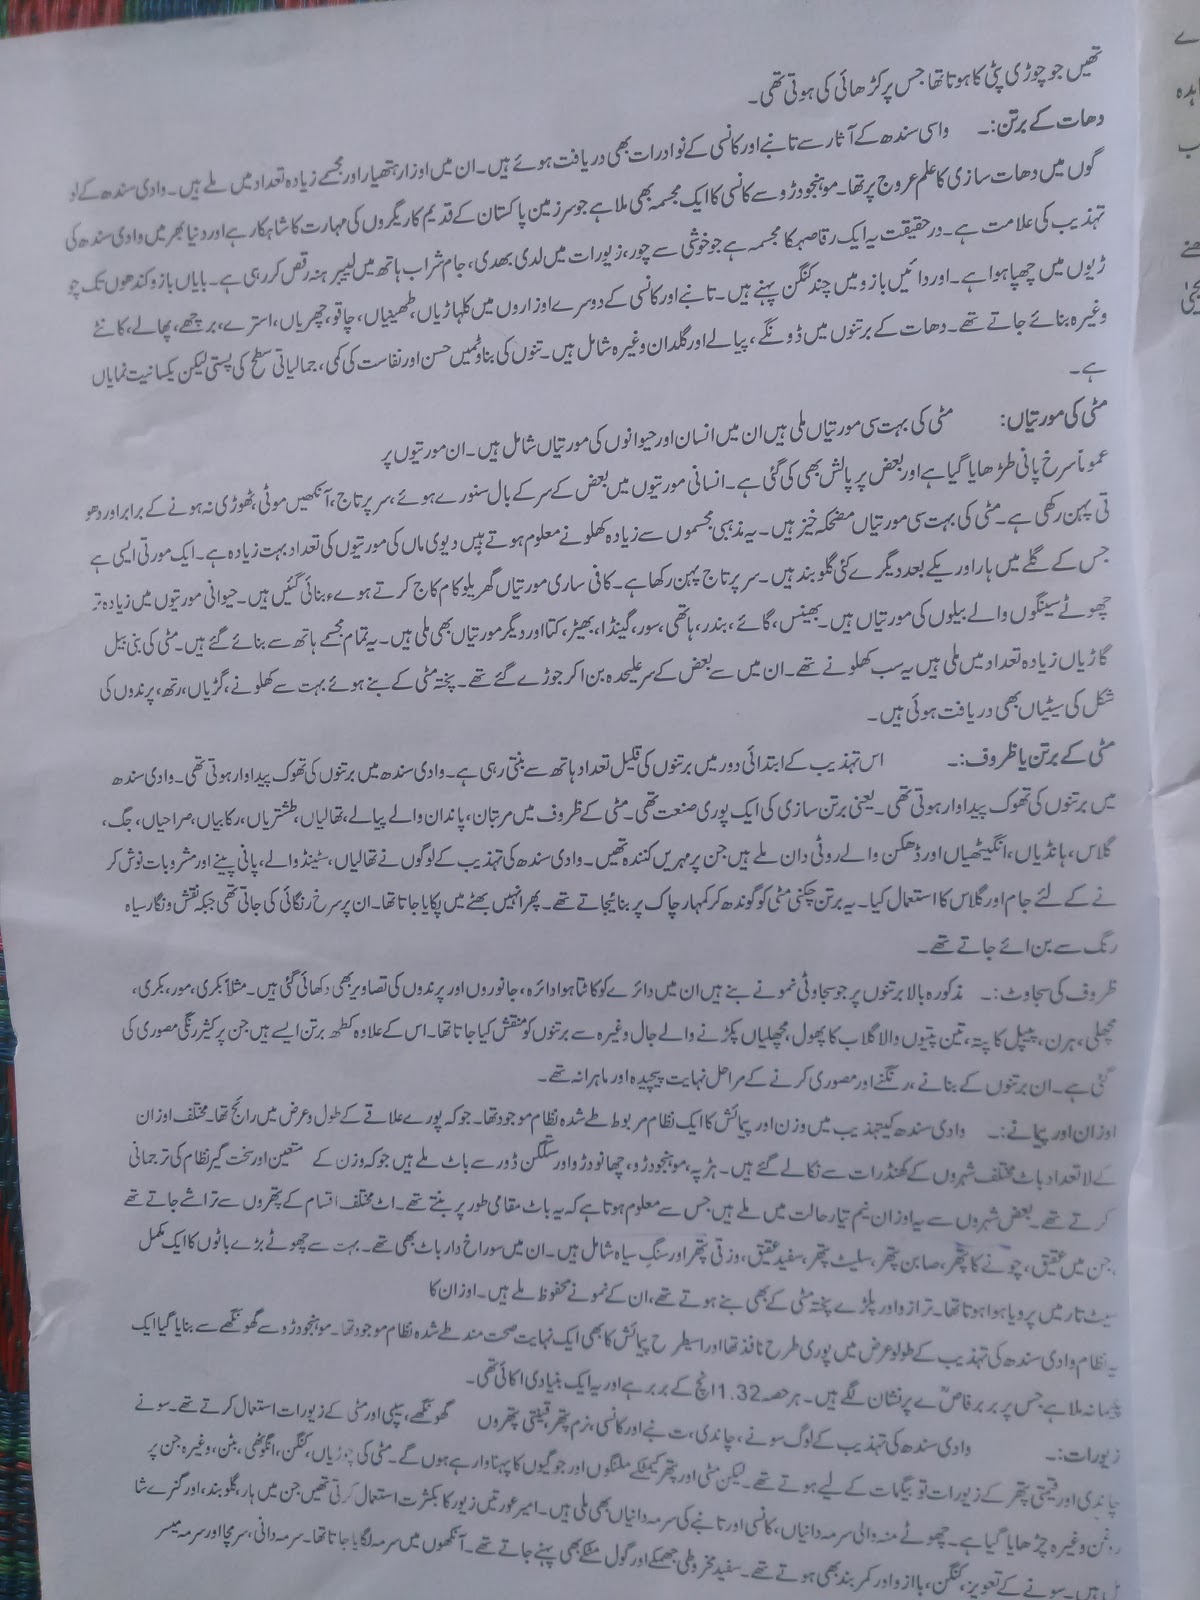 تھیں جو چوڑی پٹی کا ہوتا تھا جس پر کڑھائی کی ہوتی تھی۔
دھات کے برتن:۔ واسی سندھ کے آثار سے تانبے اور کانسی کے نوادرات بھی دریافت ہوئے ہیں۔ ان میں اوزار ہتھیار اور مجسمے زیادہ تعداد میں ملے ہیں۔ وادی سندھ کے لو
گوں میں دھات سازی کا علم عروج پر تھا۔ موہنجودڑو سے کانسی کا ایک مجسمہ بھی ملا ہے جو سرزمین پاکستان کے قدیم کاریگروں کی مہارت کا شاہکار ہے اور دنیا بھر میں وادی سندھ کی
تہذیب کی علامت ہے۔ درحقیقت یہ ایک رقاصہ کا مجسمہ ہے جو خوشی سے چور، زیورات میں لدی بھدی، جام شراب ہاتھ میں لیے برہنہ رقص کر رہی ہے۔ بایاں بازو کندھوں تک چو
ڑیوں میں چھپا ہوا ہے۔ اور دائیں بازو میں چند کنگن پہنے ہیں۔ تانبے اور کانسی کے دوسرے اوزاروں میں کلہاڑیاں، چاقو، چھریاں، استرے، برچھے، پھالے، کانٹے
وغیرہ بنائے جاتے تھے۔ دھات کے برتنوں میں ڈونگے، پیالے اور گلدان وغیرہ شامل ہیں۔ تنوں کی بناوٹمیں حسن اور نفاست کی کمی، جمالیاتی سطح کی پستی لیکن یکسانیت نمایاں
ہے۔
مٹی کی مورتیاں: مٹی کی بہت سی مورتیاں ملی ہیں ان میں انسان اور حیوانوں کی مورتیاں شامل ہیں۔ ان مورتیوں پر
عموماً سرخ پانی طڑھایا گیا ہے اور بعض پر پالش بھی کی گئی ہے۔ انسانی مورتیوں میں بعض کے سر کے بال سنورے ہوئے، سر پر تاج، آنکھیں موٹی، ٹھوڑی نہ ہونے کے برابر اور دھو
تی پہن رکھی ہے۔ مٹی کی بہت سی مورتیاں مضحکہ خیز ہیں۔ یہ مذہبی مجسموں سے زیادہ کھلونے معلوم ہوتے ہیں دیوی ماں کی مورتیوں کی تعداد بہت زیادہ ہے۔ ایک مورتی ایسی ہے
جس کے گلے میں ہار اور یکے بعد دیگرے کئی گلوبند ہیں۔ سر پر تاج پہن رکھا ہے۔ کافی ساری مورتیاں گھریلو کام کاج کرتے ہوے بنائی گئیں ہیں۔ حیوانی مورتیوں میں زیادہ تر
چھوٹے سینگوں والے بیلوں کی مورتیاں ہیں۔ بھینس، گائے، بندر، ہاتھی، سور، گینڈا، بھیڑ، کتا اور دیگر مورتیاں بھی ملی ہیں۔ یہ تمام مجسمے ہاتھ سے بنائے گئے ہیں۔ مٹی کی بنی بیل
گاڑیاں زیادہ تعداد میں ملی ہیں یہ سب کھلونے تھے۔ ان میں سے بعض کے سر علیحدہ بن اکر جوڑے گئے تھے۔ پختہ مٹی کے بنے ہوئے بہت سے کھلونے، گڑیاں، رتھ، پرندوں کی
شکل کی سیٹیاں بھی دریافت ہوئی ہیں۔
مٹی کے برتن یا ظروف:۔ اس تہذیب کے ابتدائی دور میں برتنوں کی قلیل تعداد ہاتھ سے بنتی رہی ہے۔ وادی سندھ میں برتنوں کی تھوک پیداوار ہوتی تھی۔ وادی سندھ
میں برتنوں کی تھوک پیداوار ہوتی تھی۔ یعنی برتن سازی کی ایک پوری صنعت تھی۔ مٹی کے ظروف میں مرتبان، پاندان والے پیالے، تھالیاں، طشتریاں، رکابیاں، صراحیاں، جگ،
گلاس، ہانڈیاں، انگیٹھیاں اور ڈھکن والے روٹی دان ملے ہیں جن پر مہریں کنندہ تھیں۔ وادی سندھ کی تہذیب کے لوگوں نے تھالیاں، سٹینڈ والے، پانی پینے اور مشروبات نوش کر
نے کے لئے جام اور گلاس کا استعمال کیا۔ یہ برتن چکنی مٹی کو گوندھ کر کمہار چاک پر بنائیجاتے تھے۔ پھر انہیں بھٹے میں پکایا جاتا تھا۔ ان پر سرخ رنگائی کی جاتی تھی جبکہ نقش و نگار سیاہ
رنگ سے بن ائے جاتے تھے۔
ظروف کی سجاوٹ:۔ مذکورہ بالا برتنوں پر جو سجاوٹی نمونے بنے ہیں ان میں دائرے کو کاٹتا ہوا دائرہ، جانوروں اور پرندوں کی تصاویر بھی دکھائی گئی ہیں۔ مثلاً بکری، مور، بکری،
مچھلی، ہرن، پیپل کا پتہ، تین پتیوں والا گلاب کا پھول، مچھلیاں پکڑنے والے جال وغیرہ سے برتنوں کو منقش کیا جاتا تھا۔ اس کے علاوہ کطھ برتن ایسے ہیں جن پر کثیر رنگی مصوری کی
گئی ہے۔ ان برتنوں کے بنانے، رنگنے اور مصوری کرنے کے مراحل نہایت پیچیدہ اور ماہرانہ تھے۔
اوزان اور پیمانے:۔ وادی سندھ کیتہذیب میں وزن اور پیمائش کا ایک نظام مربوط طے شدہ نظام موجود تھا۔ جو کہ پورے علاقے کے طول و عرض میں رائج تھا۔ مختلف اوزان
کے لا تعداد باٹ مختلف شہروں کے کھنڈرات سے نکالے گئے ہیں۔ ہڑپہ، موہنجودڑو، چھانودڑو اور سنتکگن ڈور سے باٹ ملے ہیں جو کہ وزن کے متعین اور سخت گیر نظام کی ترجمانی
کرتے تھے۔ بعض شہروں سے یہ اوزان نیم تیار حالت میں ملے ہیں جس سے معلوم ہوتا ہے کہ یہ باٹ مقامی طور پر بنتے تھے۔ اٹ مختلف اقسام کے پتھروں سے تراشے جاتے تھے
،جن میں عقیق، چونے کا پتھر، صابن پتھر، سلیٹ پتھر، سفید عقیق، وزنی پتھر اور سنگِ سیاہ شامل ہیں۔ ان میں سوراخ دار باٹ بھی تھے۔ بہت سے چھوٹے بڑے باٹوں کا ایک مکمل
سیٹ تار میں پرویا ہوا ہوتا تھا۔ ترازو اور پلڑے پختہ مٹی کے بھی بنے ہوتے تھے، ان کے نمونے محفوظ ملے ہیں۔ اوزان کا
یہ نظام وادی سندھ کی تہذیب کے طولو عرض میں پوری طرح نافذ تھا اور اسیطرح پیمائش کا بھی ایک نہایت صحت مند طے شدہ نظام موجود تھا۔ موہنجودڑو سے گھونگھے سے بنایا گیا ایک
پیمانہ ملا ہے جس پر بربر فاصؒے پر نشان لگے ہیں۔ ہر حصہ 1.32 انچ کے بربر ہے اور یہ ایک بنیادی اکائی تھی۔
زیورات:۔ وادی سندھ کی تہذیب کے لوگ سونے، چاندی، ت نبے اور کانسی، نرم پتھر، قیمتی پتھروں گھونگھے، سیپی اور مٹی کے زیورات استعمال کرتے تھے۔ سونے
چاندی اور قیمتی پتھر کے زیورات تو بیگمات کے لیے ہوتے تھے۔ لیکن مٹی اور پتھر کیمنکے ملنگوں اور جوگیوں کا پہناوا رہے ہوں گے۔ مٹی کی چوڑیاں، کنگن، انگوٹھی، بٹن، وغیرہ جن پر
روغن وغیرہ چڑھایا گیا ہے۔ چھوٹے منہ والی سرمہ دانیاں، کانسی اور تانبے کی سرمہ دانیاں بھی ملی ہیں۔ امیر عورتیں زیور کا بکثرت استعمال کرتی تھیں جن میں ہار، گلوبند، اور گنرے شا
مل ہیں۔ سونے کے تعویز، کنگن، باازو اور کمر بند بھی ہوتے تھے۔ سفید مخروطی جھمکے اور گول منکے بھی پہنے جاتے تھے۔ آنکھوں میں سرمہ لگایا جاتا تھا۔ سرمہ دانی، سرمچا اور سرمہ میسر